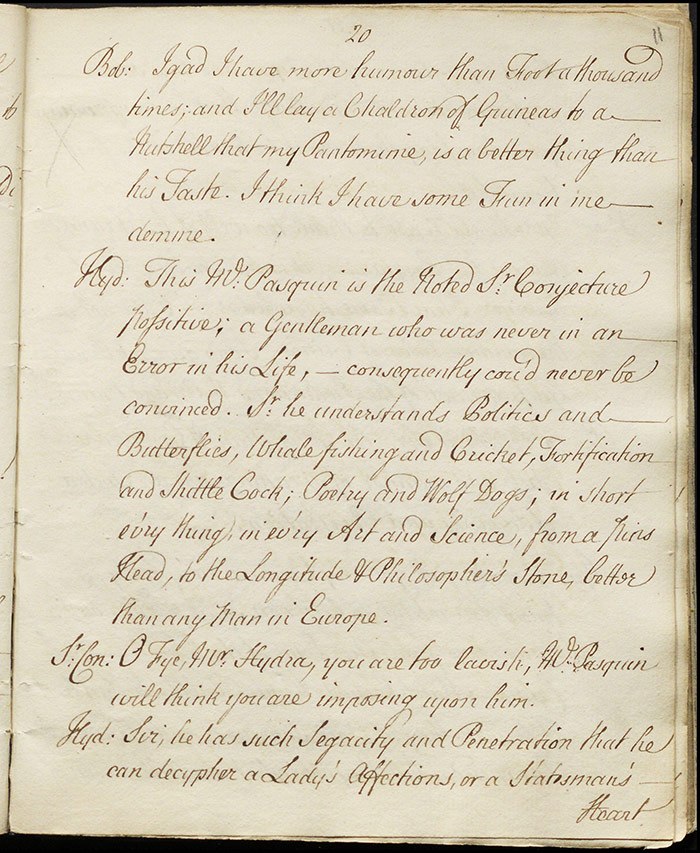 20
11
Bob: Igad I have more humour than Foot a thousand
times; and I'll lay a Chaldron of Guineas to a
Nutshell that my Pantomime, is a better thing than
his Taste. I think I have some Fun in me
demme.
Hyd: This Mr. Pasquin is the Noted Sr. Conjecture
possitive; a Gentleman who was never in an
Error in his Life, — consequently cou'd never be
convinced. Sr. he understands Politics and
Butterflies, Whale fishing and Cricket, Fortification
and Shittle Cock; Poetry and Wolf Dogs; in short
ev'ry thing, in ev'ry Art and Science, from a pins
Head, to the Longitude & Philosopher's Stone, better
than any Man in Europe.
Sr. Con: O Fye, Mr. Hydra, you are too lavish, Mr. Pasquin
will think you are imposing upon him.
Hyd: Sir, he has such Segacity and Penetration that he
can decypher a Lady's Affections, or a Statsman's
Heart